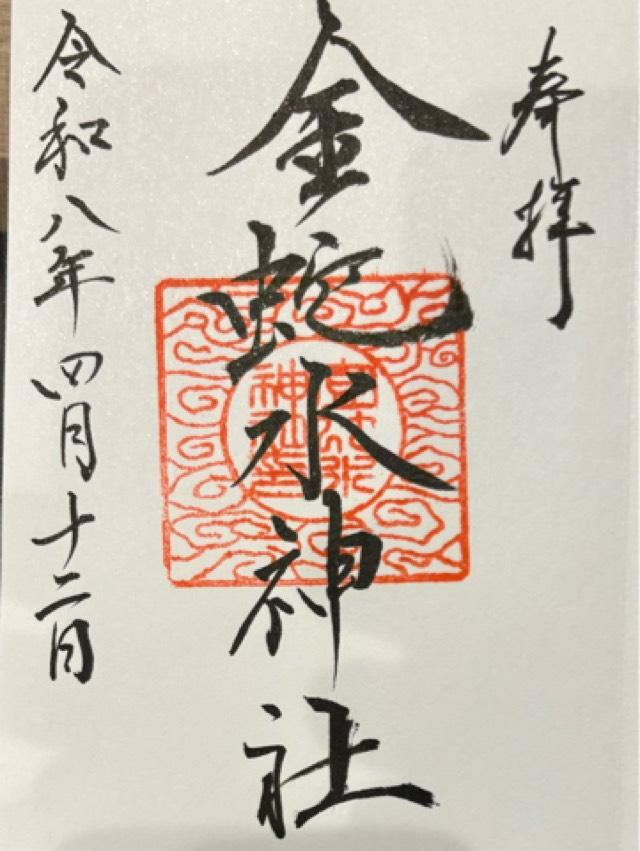 奉拝
金蛇水神社
令和八年四月十二日